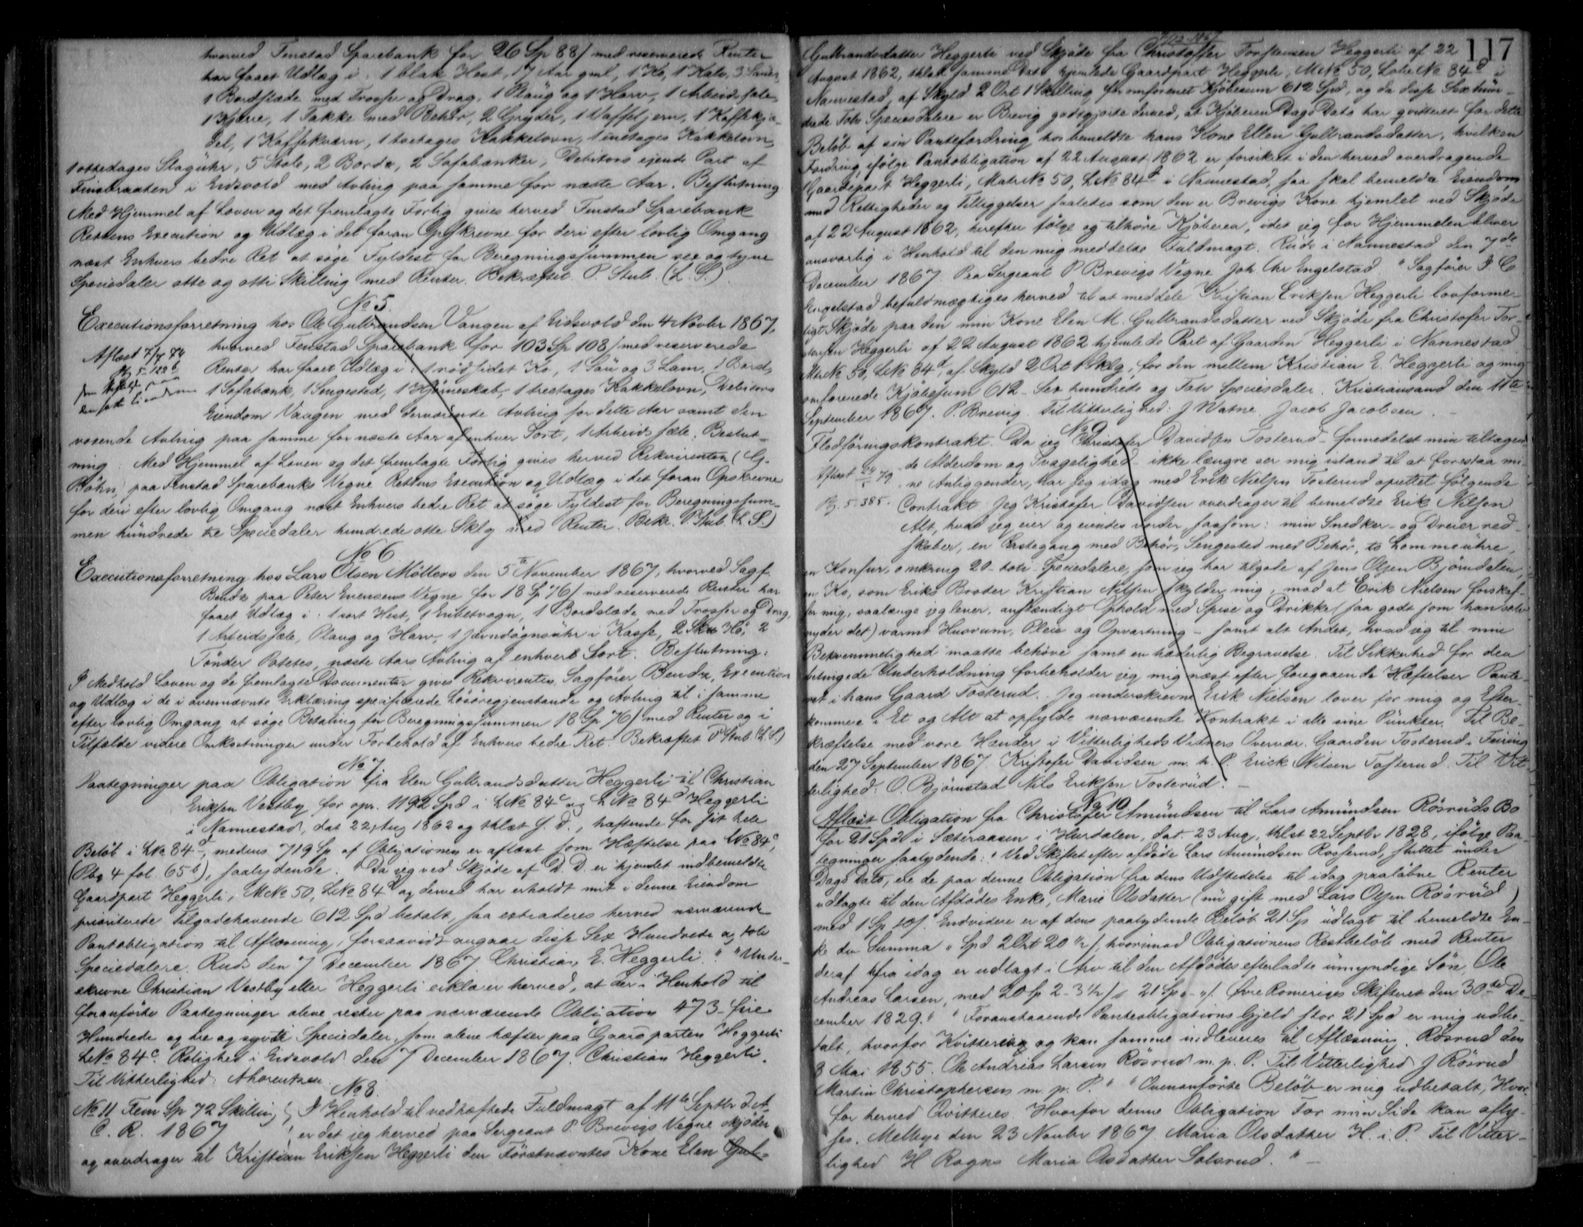 hvorved Finstad Sparebank for 26 Sp 88 / med reserverede Renter
har faaet Udlæg i: 1 blak Hest, 17 Aar gml, 1 Ko, 1 Kalv, 3
1 med og Drag, 1 Plaug og 1 Harv, 1 Arbeids
1 Kjærre, 1 med Behør, 2 Gryder, 1 Vaffeljern, 1 Kaffekje-
del, 1 Kaffekværn, 1 toetages Kakkelovn, 1 enetages Kakkelovn,
1 ottedages Slaguhr, 5 Stole, 2 Borde, 2 Sofabænker, Debitors eiende Part af
Finsbraaten i Eidsvold med Avling paa samme for næste Aar. Beslutning
Med Hjemmel af Loven og det fremlagte Forlig gives herved Finstad Sparebank
Rettens Execution og Udlæg i det foran Opskrevne for deri efter lovlig Omgang
næst Enhvers bedre Ret at söge Fyldest for Beregningssummen sex og tyve
Speciedaler otte og otti Skilling med Renter. Bekræftet P. Stub (L. S.)
No 5
Executionsforretning hos Ole Gulbrandsen Vangen af Eidsvold den 4 Novbr 1867
Aflæst 7/7 74
hvorved Finstad Sparebank for 103 Sp 108 / med reserverede
Renter har faaet Udlæg i 1 rödsidet Ko, 1 Sau og 3 Lam, 1 Bord,
1 Sofabænk, 1 Sengested, 1 Hjörneskab, 1 treetages Kakkelovn, Debitors
Eiendom Vangen med Avling for dette Aar samt den
voxende Avling paa samme for næste Aar af enhver Sort, 1 Arbeids Sæle. Beslut-
ning: Med Hjemmel af Loven og det fremlagte Forlig gives herved Rekvirenten (G.
Böhn) paa Finstad Sparebanks Vegne Rettens Execution og Udlæg i det foran Opskrevne
for deri efter lovlig Omgang næst Enhvers bedre Ret at söge Fyldest for Beregningssum-
men hundrede tre Speciedaler hundrede otte Sklg med Renter. Bekr. P. Stub (L. S.)
No 6
Executionsforretning hos Lars Olsen Möllers den 5te November 1867, hvorved Sagf.
Bendz paa Peter Evensens Vegne for 18 Sp 76 / med reserverede Renter har
faaet Udlæg i: 1 sort Hest, 1 Enbetvogn, 1 med og Drag,
1 Arbeids Sæle, Plaug og Harv, 1 Kasse, 2 Ko, 2
Tönder Potetes, næste Aars Avling af enhver Sort. Beslutning:
I Medhold Loven og de fremlagte Documenter gives Rekvirenten, Sagförer Bendz, Execution
og Udlæg i de i ovennævnte Erklæring specificerede Lösöregjenstande og Avling til i samme
efter lovlig Omgang at söge Betaling for Beregningssummen 18 Sp 76 / med Renter og i
Tilfælde videre Omkostninger under Forbehold af Enhvers bedre Ret. Bekræftet P Stub (L. S.)
No 7
Paategninger paa Obligation fra Elen Gulbrandsdatter Heggerli til Christian
Eriksen Vestby for opr. 1192 Spd i LNo 84c og LNo 84d Heggerli
i Nannestad, dat 22 Aug 1862 og thlæst s. D., hæftende for sit hele
Belöb i LNo 84d, medens 719 Sp af Obligationen er aflæst som Hæftelse paa LNo 84c
(Pb. 4 fol. 656), saalydende: " Da jeg ved Skjöde af D. D. er hjemlet indbemeldte
Gaardpart Heggerli, MNo 50, LNo 84d og derved har erholdt mit i denne Eiendom
prioriterede tilgodehavende 612 Spd betalt, saa extraderes herved nærværende
Pantobligation til Aflæsning, forsaavidt angaar disse Sex Hundrede og tolv
Speciedalere. Rud den 7 December 1867 Christian E. Heggerli. " " Under-
skrevne Christian Vestby eller Heggerli erklærer herved, at der i Henhold til
foranförte Paategninger alene rester paa nærværende Obligation 473 - fire
Hundrede og tre og sytti Speciedaler, som alene hæfter paa Gaardparten Heggerli
LNo 84c. Rolighed i Eidsvold den 7 December 1867. Christian Heggerli.
Til Vitterlighed: A Lorentzen
No 8
No 11 Fem Sp 72 Skilling
C. R. 1867
I Henhold til vedhæftede Fuldmagt af 11te Septbr d. A.
er det jeg herved paa Sergeant P. Brevigs Vegne skjöder
og overdrager til Kristian Eriksen Heggerli den Förstnævntes Kone Elen Gul-
117
Gulbrandsdatter Heggerli ved Skjöde fra Christoffer Torstensen Heggerli af 22
August 1862, thlæst samme Dag hjemlede Gaardpart Heggerli, MNo 50, Lobe No 84d i
Nannestad, af Skyld 2 Ort 1 Skilling, for omforenet Kjöbesum 612 Spd, og da disse Sexhun-
drede Tolv Speciedalere er Brevig godtgjorte derved, at Kjöberen Dags Dato har qvitteret for dette
Belöb af sin Pantefordring hos bemeldte hans Kone Ellen Gulbrandsdatter, hvilken
Fordring ifölge Pantobligation af 22 August 1862 er forsikret i den herved overdragende
Gaardpart Heggerli, MatrNo 50, LNo 84d i Nannestad, saa skal bemeldte Eiendom
med Rettigheder og Tilliggelser saaledes som den er Brevigs Kone hjemlet ved Skjöde
af 22 August 1862, herefter fölge og tilhöre Kjöberen, idet jeg for Hjemmelen bliver
ansvarlig i Henhold til den mig meddelte Fuldmagt. Rud i Nannestad den 7de
December 1867. Paa Sergeant P Brevigs Vegne Joh Chr Engelstad " Sagförer J C
Engelstad befuldmægtiges herved til at meddele Kristian Eriksen Heggerli lovforme-
ligt Skjöde paa den min Kone Elen M. Gulbrandsdatter ved Skjöde fra Christofer Tor-
stensen Heggerli af 22 August 1862 hjemlede Part af Gaarden Heggerli i Nannestad
MtrNo 50, LNo 84d af Skyld 2 Ort 1 Sklg, for den mellem Kristian E. Heggerli og mig
omforenede Kjöbesum 612 - Sex hundrede og Tolv Speciedaler. Kristiansand den 11te
September 1867. P. Brevig. Til Vitterlighed: J Watne. Jacob Jacobsen.
No 9
Flodföringskontrakt. Da jeg Christofer Davidsen Tosterud - formedelst min tiltagen-
de Alderdom og Svagelighed - ikke længre ser mig istand til at forestaa mi-
ne Anliggender, har jeg idag med Erik Nielsen Tosterud oprettet fölgende
Contrakt. Jeg Kristofer Davidsen overdrager til bemeldte Erik Nilsen
Alt, hvad jeg eier og eiendes vorder, saasom: min Snedker- og Dreier red-
skaber, en Ristegang med Behör, Sengested med Behör, to Lommeuhre,
en Komfur, omkring 20 - tote - Speciedalere, som jeg har tilgode af Jens Olsen Björndalen,
en Ko, som Eriks Broder Kristian Nilsen skylder mig, mod at Erik Nielsen forskaf-
fer mig, saalænge jeg lever, anstændigt Ophold med Spise og Drikke (saa godt som han selv
nyder det) varmt Husrum, Pleie og Opvartning - samt alt Andet, hvad jeg til min
Bekvemmelighed maatte behöve samt en hæderlig Begravelse. Til Sikkerhed for den
betingede Underholdning forbeholder jeg mig næst efter Foregaaende Hæftelser Pante-
ret i hans Gaard Tosterud. Jeg underskrevne Erik Nielsen lover for mig og Efter-
kommere i Et og Alt at opfylde nærværende Kontrakt i alle sine Punkter. Til Be-
kræftelse med vore Hænder i Vitterligheds Vidners Overvær. Gaarden Tosterud i Feiring
den 27 September 1867. Kristofer Davidsen m. h. P. Erick Nilsen Tosterud. Til Vit-
terlighed: O. Björnstad Nils Eriksen Tosterud.
Aflæst 79
Pj. 5. 385.
No 10
Aflæst Obligation fra Christofer Amundsen til Lars Amundsen Rösruds Bo
for 21 Spd i Sæteraasen i Hurdalen, dat. 23 Aug, thlæst 22 Septbr 1828, ifölge Paa-
tegninger saalydende: " Ved Skiftet efter afdöde Lars Amundsen Rosserud, sluttet under
Dags Dato, ere de paa denne Obligation fra dens Udstedelse til idag paalöbne Renter
udlagte til den Afdödes Enke, Marie Olsdatter (nu gift med Lars Olsen Rösrud)
med 1 Sp. Endvidere er af dens paalydende Belöb 21 Sp udlagt til bemeldte En-
ke den Summa " Spd 2 Ort 20 /, hvorimod Obligationens Restbelöb med Renter
deraf fra idag er udlagt i Arv til den Afdödes efterladte umyndige Sön, Ole
Andreas Larsen, med 20 Sp 2 - 3 1/2 / 21 Sp. Övre Romeriges Skifteret den 30te De-
cember 1829. " " Foranstaaende Pantobligations Gjeld stor 21 Spd er mig udbe-
talt, hvorfor Kvitteres og kan samme indleveres til Aflæsning. Rösrud den
8 Mai 1855. Ole Andreas Larsen Rösrud m. p. P. Til Vitterlighed J Rösrud
Martin Christophersen m. p. P. " " Ovenanförte Belöb er mig udbetalt, Hvor-
for herved Qvitteres. Hvorfor denne Obligation for min Side kan afly-
ses. Melbye den 23 Novbr 1867 Maria Olsdatter H. i. P. Til Vitter-
lighed H Ragns Maria Olsdatter Solerud. "